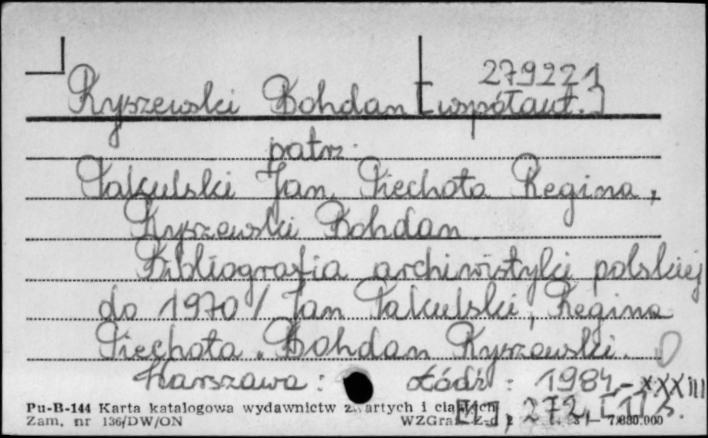 279221
Ryszewski Bohdan [współaut.]
patrz
Pakulski Jan, Piechota Regina,
Ryszewski Bohdan
Bibliografia archiwistyki polskiej
do 1970 / Jan Pakulski, Regina
Piechota, Bohdan Ryszewski.
Warszawa ; Łódź : 1984. - XXXIII
[1], 272, [1] s.
Pu-B-144 Karta katalogowa wydawnictw zwartych i ciągłych
Zam. nr 136/DW/ON WZGraf. 7.880.000